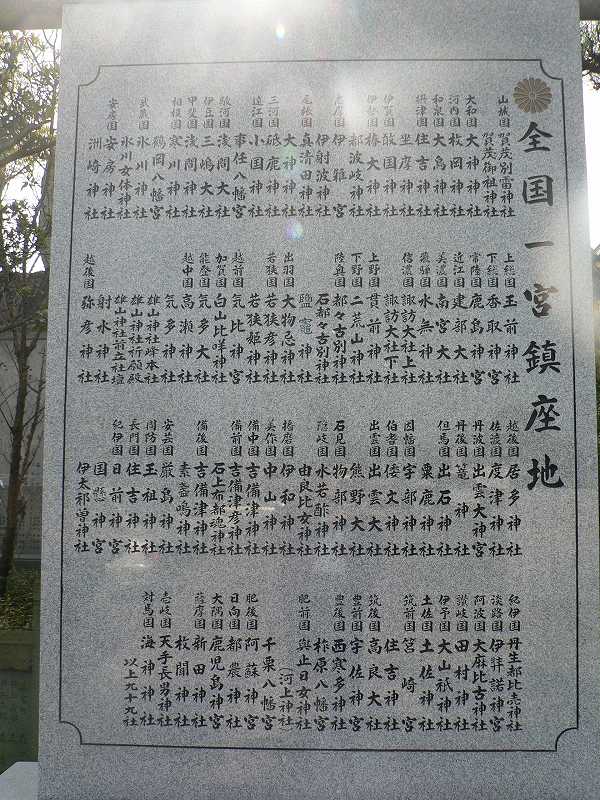 全国一宮鎮座地
山城国 賀茂別雷神社
賀茂御祖神社
大和国 大神神社
河内国 枚岡神社
和泉国 大鳥神社
摂津国 住吉神社
坐摩神社
伊賀国 敢国神社
伊勢国 椿大神社
都波岐神社
志摩国 伊雑宮
伊射波神社
尾張国 真清田神社
大神神社
三河国 砥鹿神社
遠江国 小国神社
事任八幡宮
駿河国 浅間大社
伊豆国 三嶋大社
甲斐国 浅間神社
相模国 寒川神社
鶴岡八幡宮
武蔵国 氷川神社
氷川女体神社
安房国 安房神社
洲崎神社
上総国 玉前神社
下総国 香取神宮
常陸国 鹿島神宮
近江国 建部大社
美濃国 南宮大社
飛騨国 水無神社
信濃国 諏訪大社上社
諏訪大社下社
上野国 貫前神社
下野国 二荒山神社
陸奥国 都々古別神社
石都々古別神社
鹽竈神社
出羽国 大物忌神社
若狭国 若狭彦神社
若狭姫神社
越前国 気比神宮
加賀国 白山比咩神社
能登国 気多大社
越中国 高瀬神社
気多神社
雄山神社峰本社
雄山神社祈願殿
雄山神社前立社壇
射水神社
越後国 弥彦神社
越後国 居多神社
佐渡国 度津神社
丹波国 出雲大神宮
丹後国 籠神社
但馬国 出石神社
粟鹿神社
因幡国 宇部神社
伯耆国 倭文神社
出雲国 出雲大社
熊野大社
石見国 物部神社
隠岐国 水若酢神社
由良比女神社
播磨国 伊和神社
美作国 中山神社
備中国 吉備津神社
備前国 吉備津彦神社
石上布都魂神社
備後国 吉備津神社
素盞鳴神社
安芸国 厳島神社
周防国 玉祖神社
長門国 住吉神社
紀伊国 日前神宮
国懸神宮
伊太祁曽神社
紀伊国 丹生都比売神社
淡路国 伊弉諾神宮
阿波国 大麻比古神社
讃岐国 田村神社
伊予国 大山祇神社
土佐国 土佐神社
筑前国 筥崎宮
住吉神社
筑後国 高良大社
豊前国 宇佐神宮
豊後国 西寒多神社
柞原八幡宮
肥前国 與止日女神社
(河上神社)
千栗八幡宮
肥後国 阿蘇神社
日向国 都農神社
大隅国 鹿児島神宮
薩摩国 新田神社
枚聞神社
壱岐国 天手長男神社
対馬国 海神神社
以上九十九社